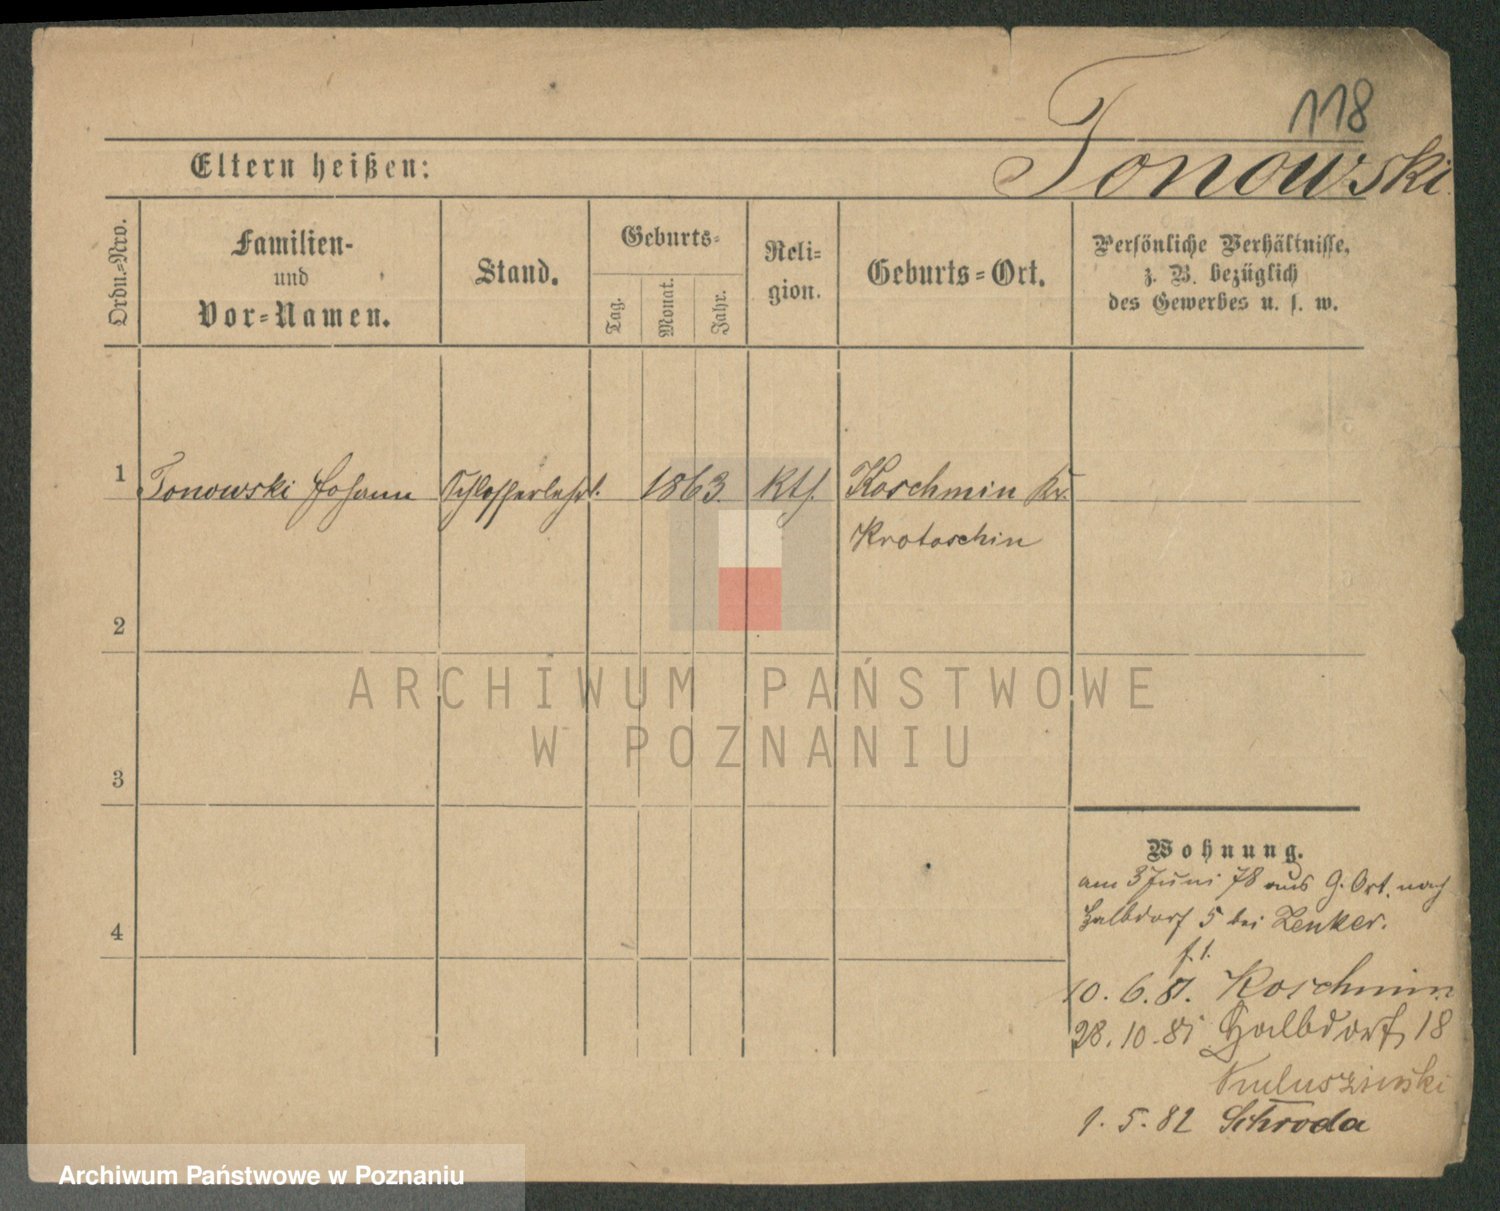 118
Tonowski.
Eltern heißen:
Ordn.=Nro.
Familien-
und
Vor=Namen.
Stand.
Geburts=
Tag.
Monat.
Jahr.
Reli=
gion.
Geburts=Ort.
Persönliche Verhältnisse,
z. B. bezüglich
des Gewerbes u. s. w.
1 Tonowski Johann Schlosserlehrl. 1863. Kth. Koschmin Kr.
Krotoschin
2
3
4
Wohnung.
am 3 Juni 78 aus G. Ort. nach
Halbdorf 5 bei Zenker.
10. 6. 81. Koschmin
28. 10. 81 Halbdorf, 18
1. 5. 82 Schroda
ARCHIWUM PAŃSTWOWE
W POZNANIU
Archiwum Państwowe w Poznaniu